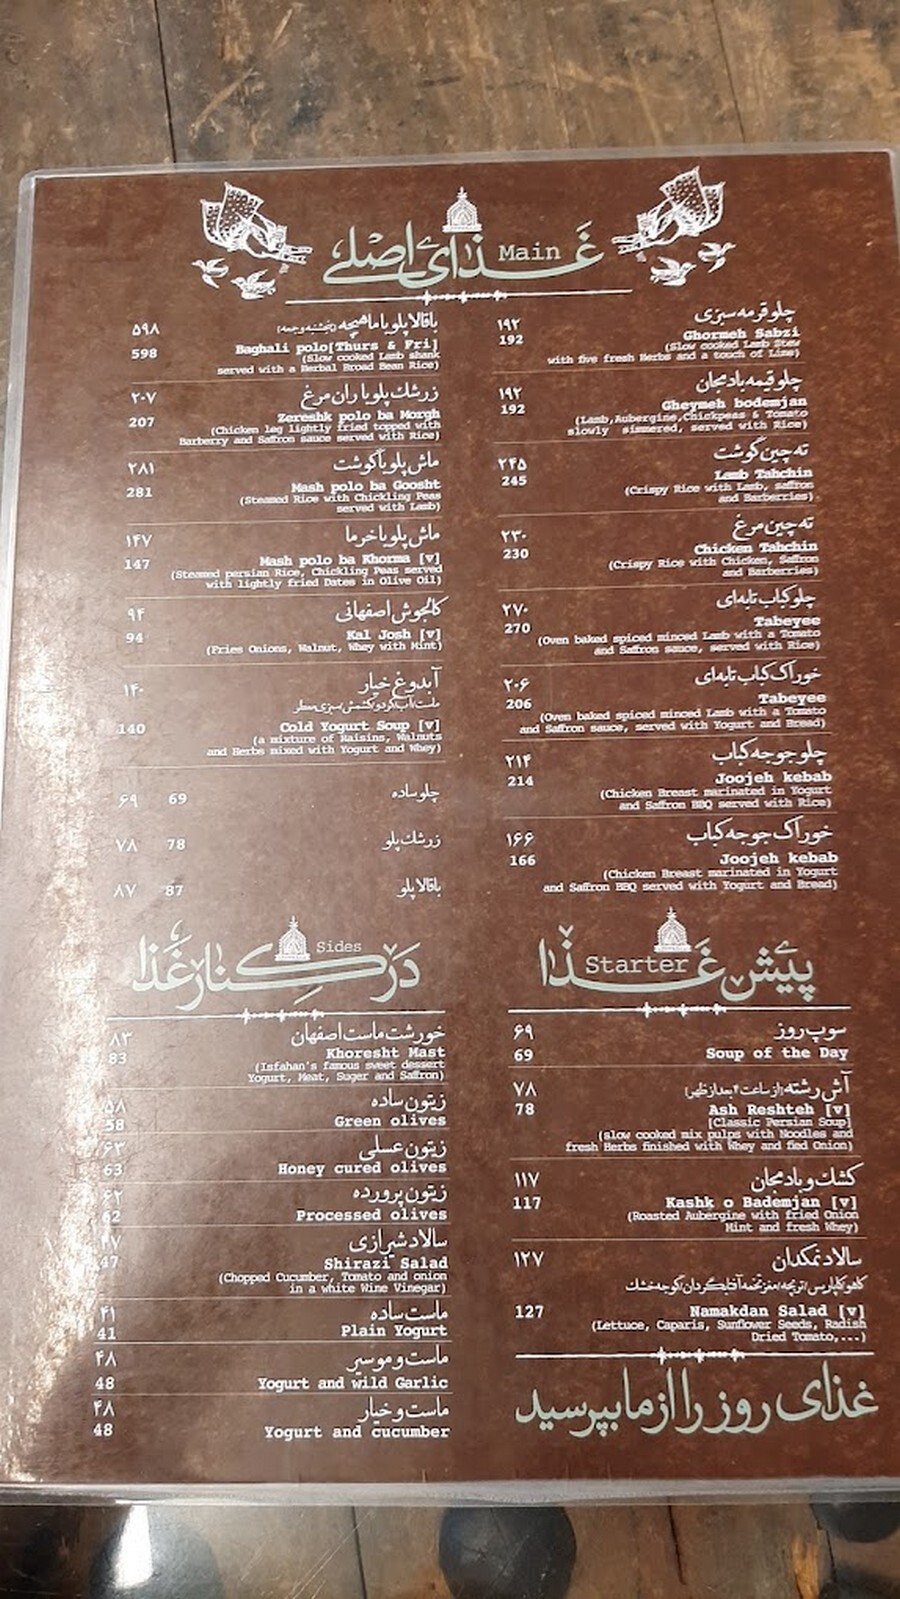 غذای اصلی Main
چلو قرمه سبزی
۱۹۲
Ghormeh Sabzi
192
(Slow cooked Lamb Stew
with five fresh Herbs and a touch of Lime)
چلو قیمه بادمجان
۱۹۲
Gheymeh bodemjan
192
(Lamb,Aubergine,Chickpeas & Tomato
slowly simmered, served with Rice)
ته چین گوشت
۲۴۵
Lamb Tahchin
245
(Crispy Rice with Lamb, saffron
and Barberries)
ته چین مرغ
۲۳۰
Chicken Tahchin
230
(Crispy Rice with Chicken, Saffron
and Barberries)
چلو کباب تابه ای
۲۷۰
Tabeyee
270
(Oven baked spiced minced Lamb with a Tomato
and Saffron sauce, served with Rice)
خوراک کباب تابه ای
۲۰۶
Tabeyee
206
(Oven baked spiced minced Lamb with a Tomato
and Saffron sauce, served with Yogurt and Bread)
چلو جوجه کباب
۲۱۴
Joojeh kebab
214
(Chicken Breast marinated in Yogurt
and Saffron BBQ served with Rice)
خوراک جوجه کباب
۱۶۶
Joojeh kebab
166
(Chicken Breast marinated in Yogurt
and Saffron BBQ served with Yogurt and Bread)
باقالا پلو با ماهیچه (پنجشنبه و جمعه)
۵۹۸
Baghali polo[Thurs & Fri]
598
(Slow cooked Lamb shank
served with a Herbal Broad Bean Rice)
زرشك پلو با ران مرغ
۲۰۷
Zereshk polo ba Morgh
207
(Chicken leg lightly fried topped with
Barberry and Saffron sauce served with Rice)
ماش پلو با گوشت
۲۸۱
Mash polo ba Goosht
281
(Steamed Rice with Chickling Peas
served with Lamb)
ماش پلو با خرما
۱۴۷
Mash polo ba Khorma [v]
147
(Steamed persian Rice, Chickling Peas served
with lightly fried Dates in Olive Oil)
کالجوش اصفهانی
۹۴
Kal Josh [v]
94
(Fries Onions, Walnut, Whey with Mint)
آبدوغ خیار
۱۴۰
Cold Yogurt Soup [v]
140
(a mixture of Raisins, Walnuts
and Herbs mixed with Yogurt and Whey)
چلو ساده
69 ۶۹
زرشك پلو
78 ۷۸
باقالا پلو
87 ۸۷
پیش غذا Starter
سوپ روز
۶۹
Soup of the Day
69
آش رشته (از ساعت ۴ بعد از ظهر)
۷۸
Ash Reshteh [v]
78
[Classic Persian Soup]
(slow cooked mix pulps with Noodles and
fresh Herbs finished with Whey and fied Onion)
کشك و بادمجان
۱۱۷
Kashk o Bademjan [v]
117
(Roasted Aubergine with fried Onion
Mint and fresh Whey)
سالاد نمکدان
۱۲۷
کاهو/کاپارس/تربچه/مغز تخمه آفتابگردان/گوجه خشك
Namakdan Salad [v]
127
(Lettuce, Caparis, Sunflower Seeds, Radish
Dried Tomato,...)
غذای روز را از ما بپرسید
در کنار غذا Sides
خورشت ماست اصفهان
۸۳
Khoresht Mast
83
(Isfahan's famous sweet dessert
Yogurt, Meat, Suger and Saffron)
زیتون ساده
۵۸
Green olives
58
زیتون عسلی
۶۳
Honey cured olives
63
زیتون پرورده
۶۲
Processed olives
62
سالاد شیرازی
Shirazi Salad
47
(Chopped Cucumber, Tomato and onion
in a white Wine Vinegar)
ماست ساده
۴۱
Plain Yogurt
41
ماست و موسیر
۴۸
Yogurt and wild Garlic
48
ماست و خیار
۴۸
Yogurt and cucumber
48